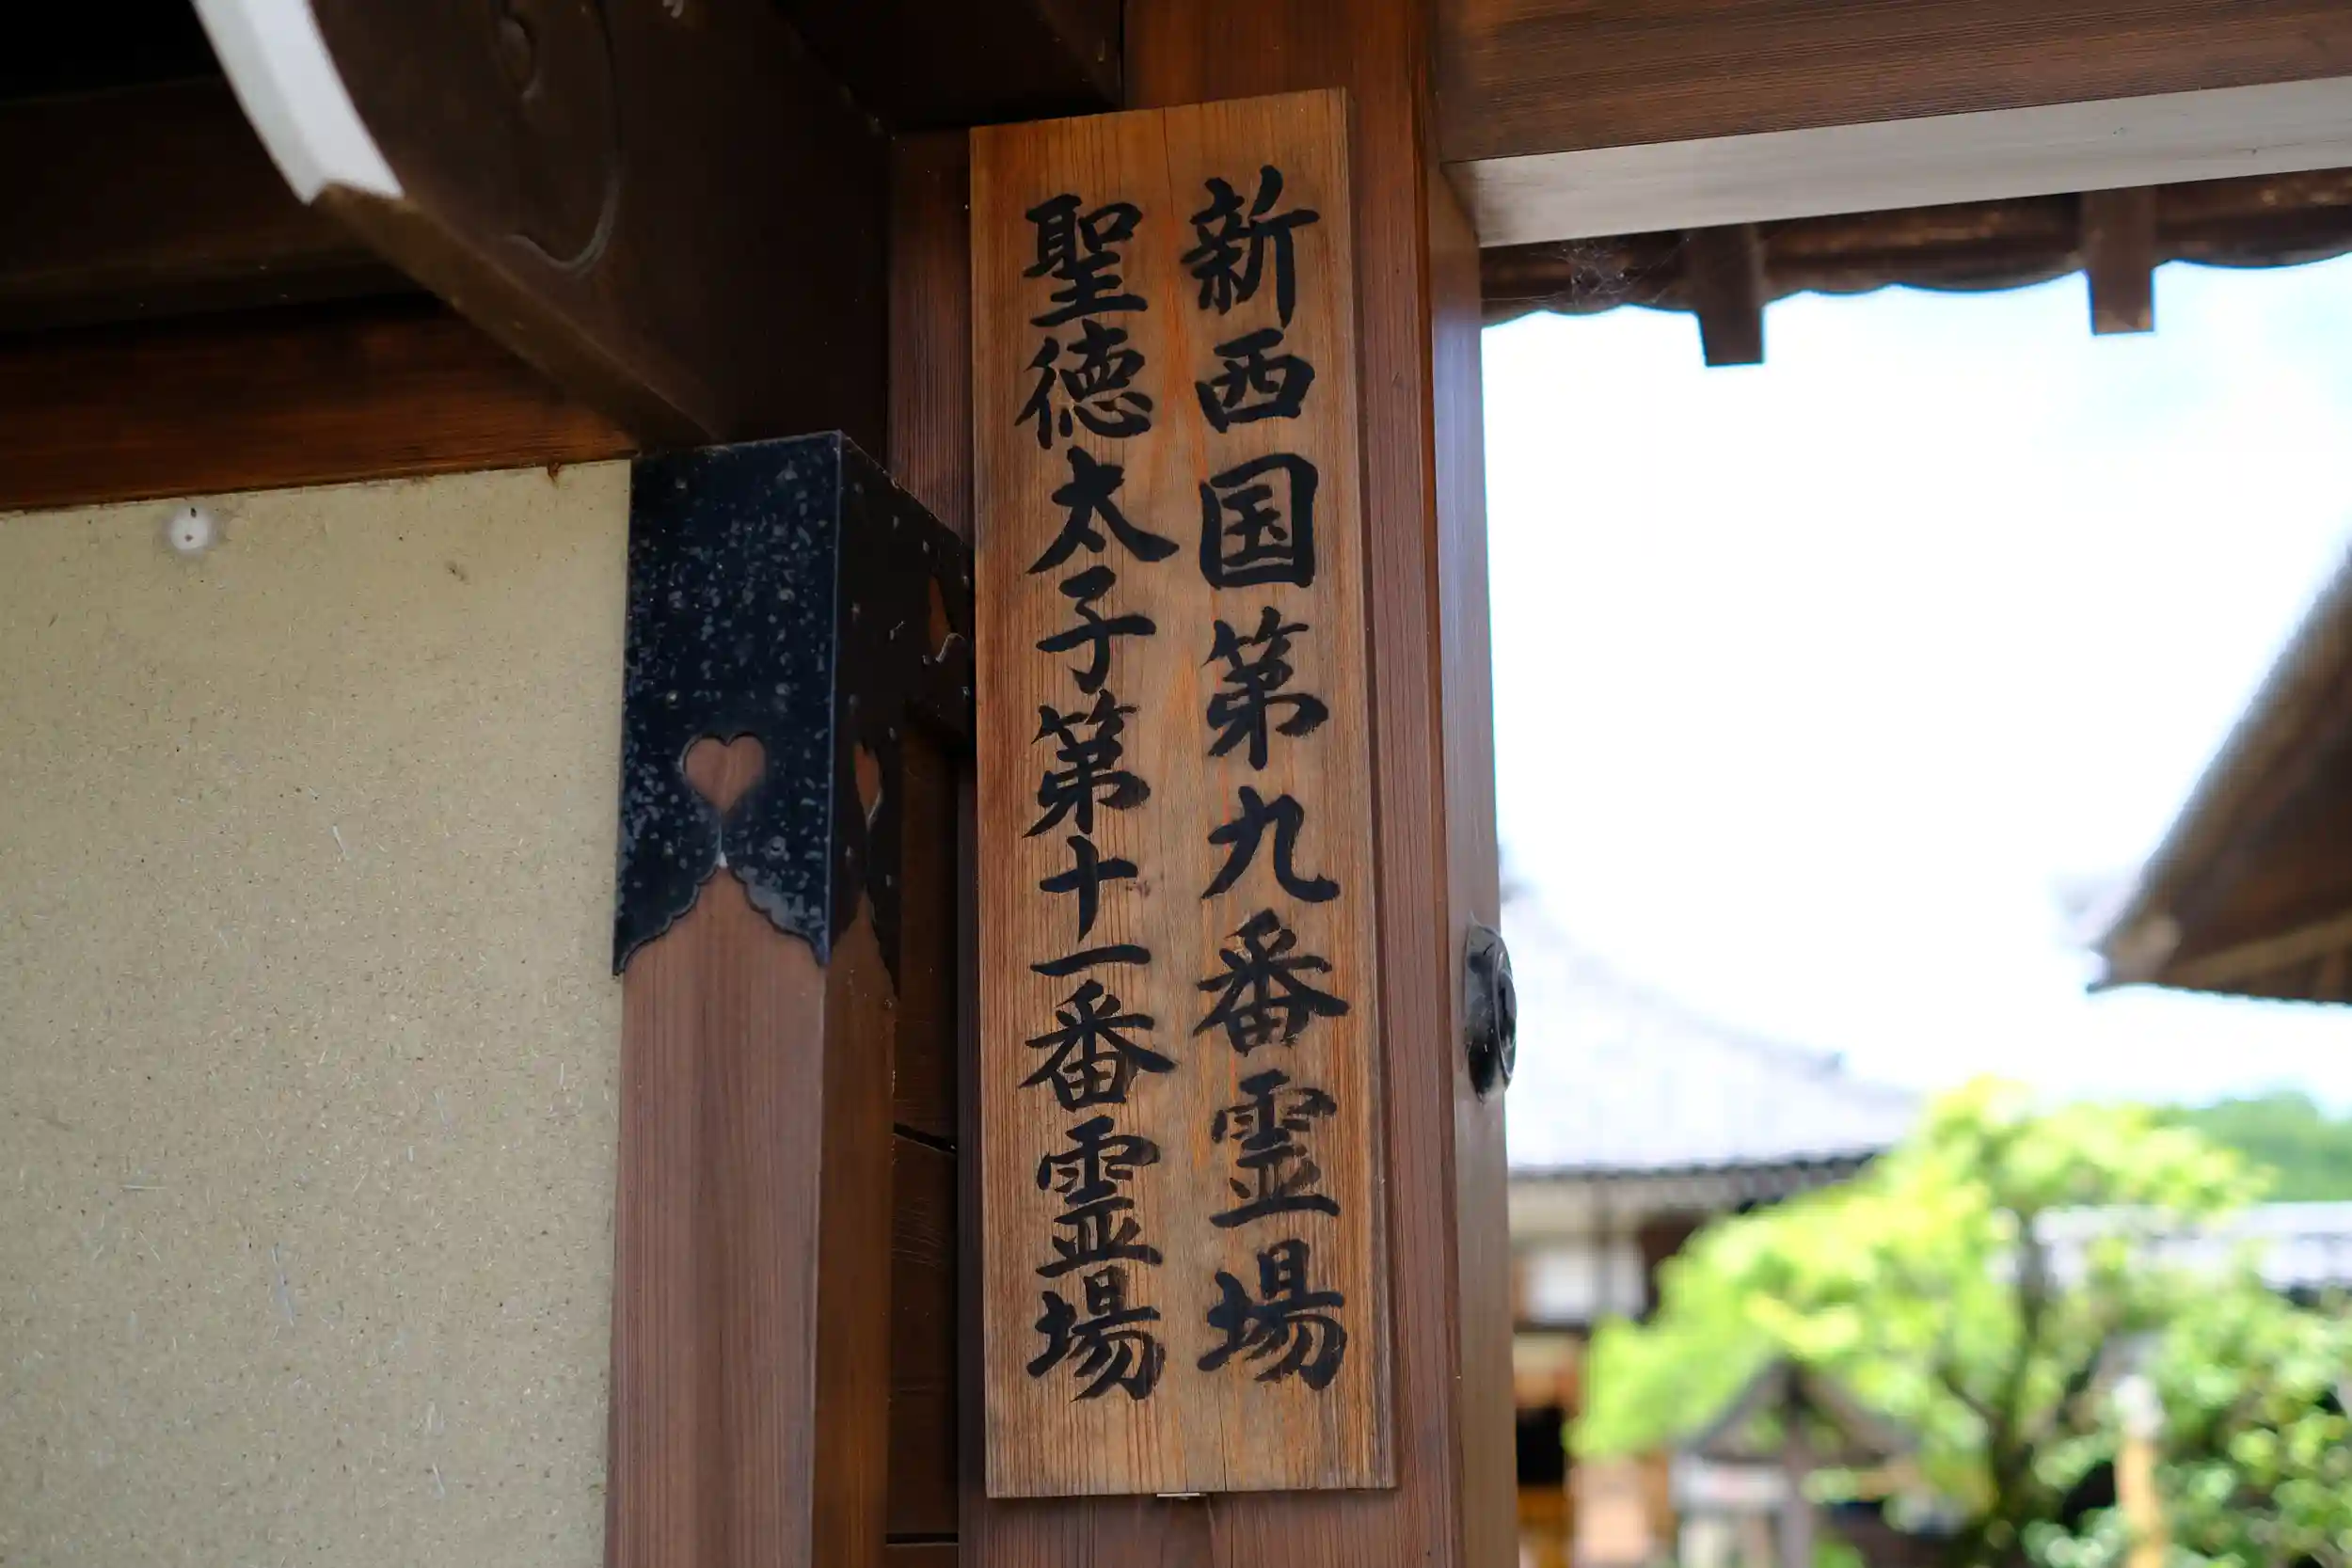 新西国第九番霊場
聖徳太子第十一番霊場